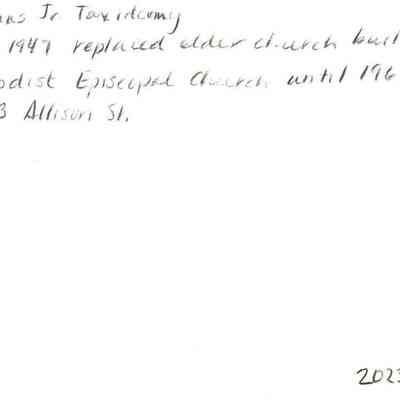 Jr Taxidermy
1947 replaced older church buil
odist Episcopal Church until 196
3 Allison St.
2023